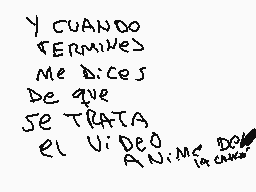 Y CUANDO
TERMINES
ME DICES
DE QUE
SE TRATA
EL VIDEO
ANIME DE
LA